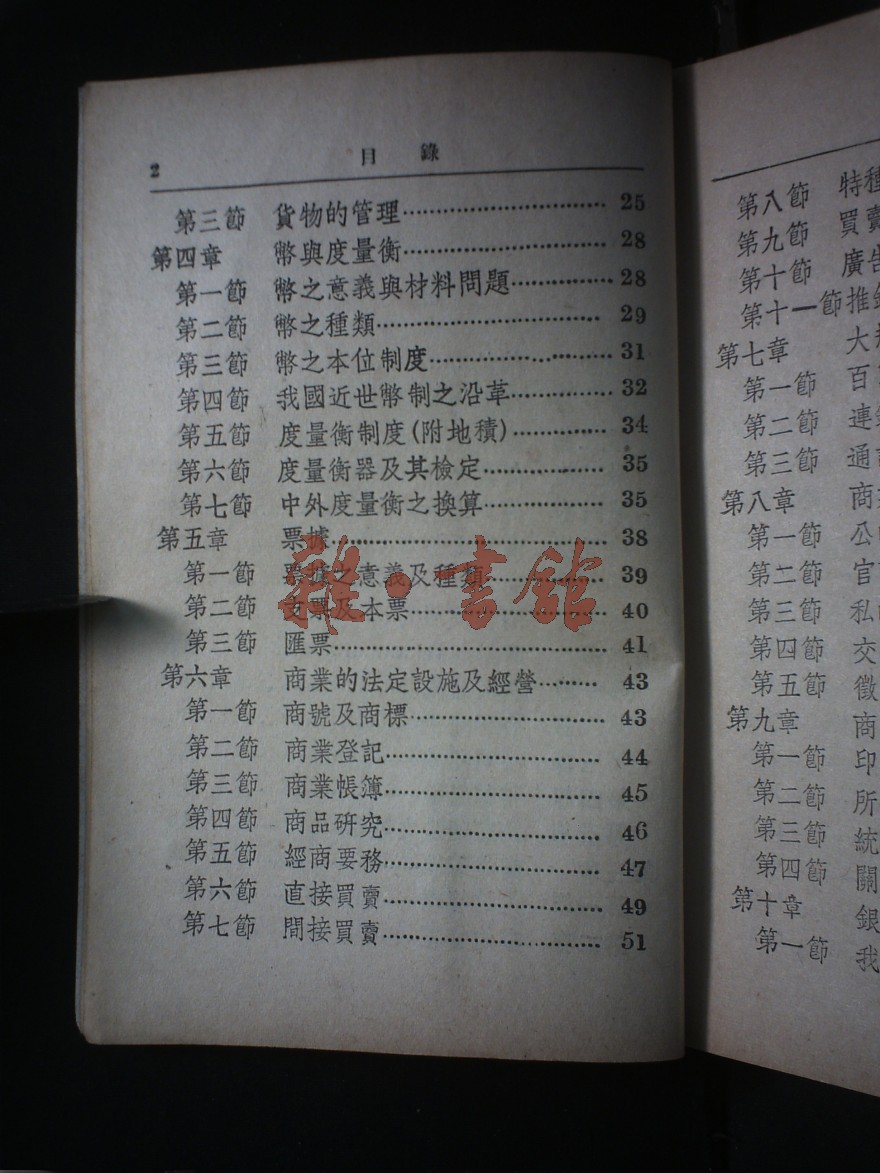 2 目錄
第三節 貨物的管理 25
第四章 幣與度量衡 28
第一節 幣之意義與材料問題 28
第二節 幣之種類 29
第三節 幣之本位制度 31
第四節 我國近世幣制之沿革 32
第五節 度量衡制度(附地積) 34
第六節 度量衡器及其檢定 35
第七節 中外度量衡之換算 35
第五章 票據 38
第一節 票據之意義及種類 39
第二節 支票及本票 40
第三節 匯票 41
第六章 商業的法定設施及經營 43
第一節 商號及商標 43
第二節 商業登記 44
第三節 商業帳簿 45
第四節 商品研究 46
第五節 經商要務 47
第六節 直接買賣 49
第七節 間接買賣 51
雜·書館
第八節 特種
第九節 買賣
第十節 廣告
第十一節 推銷
第七章 大
第一節 百
第二節 連
第三節 通
第八章 商
第一節 公
第二節 官
第三節 私
第四節 交
第五節 徵
第九章 商
第一節 印
第二節 所
第三節 統
第四節 關
第十章 銀
第一節 我